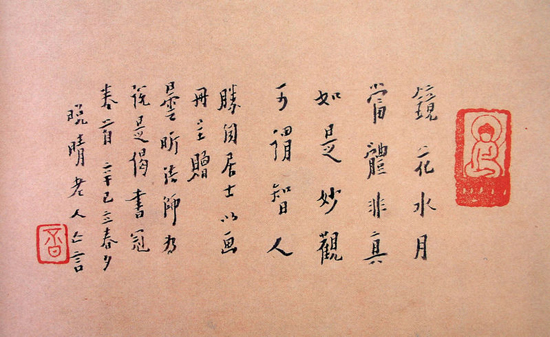 鏡花水月
當體非眞
如是妙觀
可謂智人
勝居士以画
冊贈
曇昕法師為
說是偈書冠
卷首 辛巳立春夕
晚晴老人亡言
音